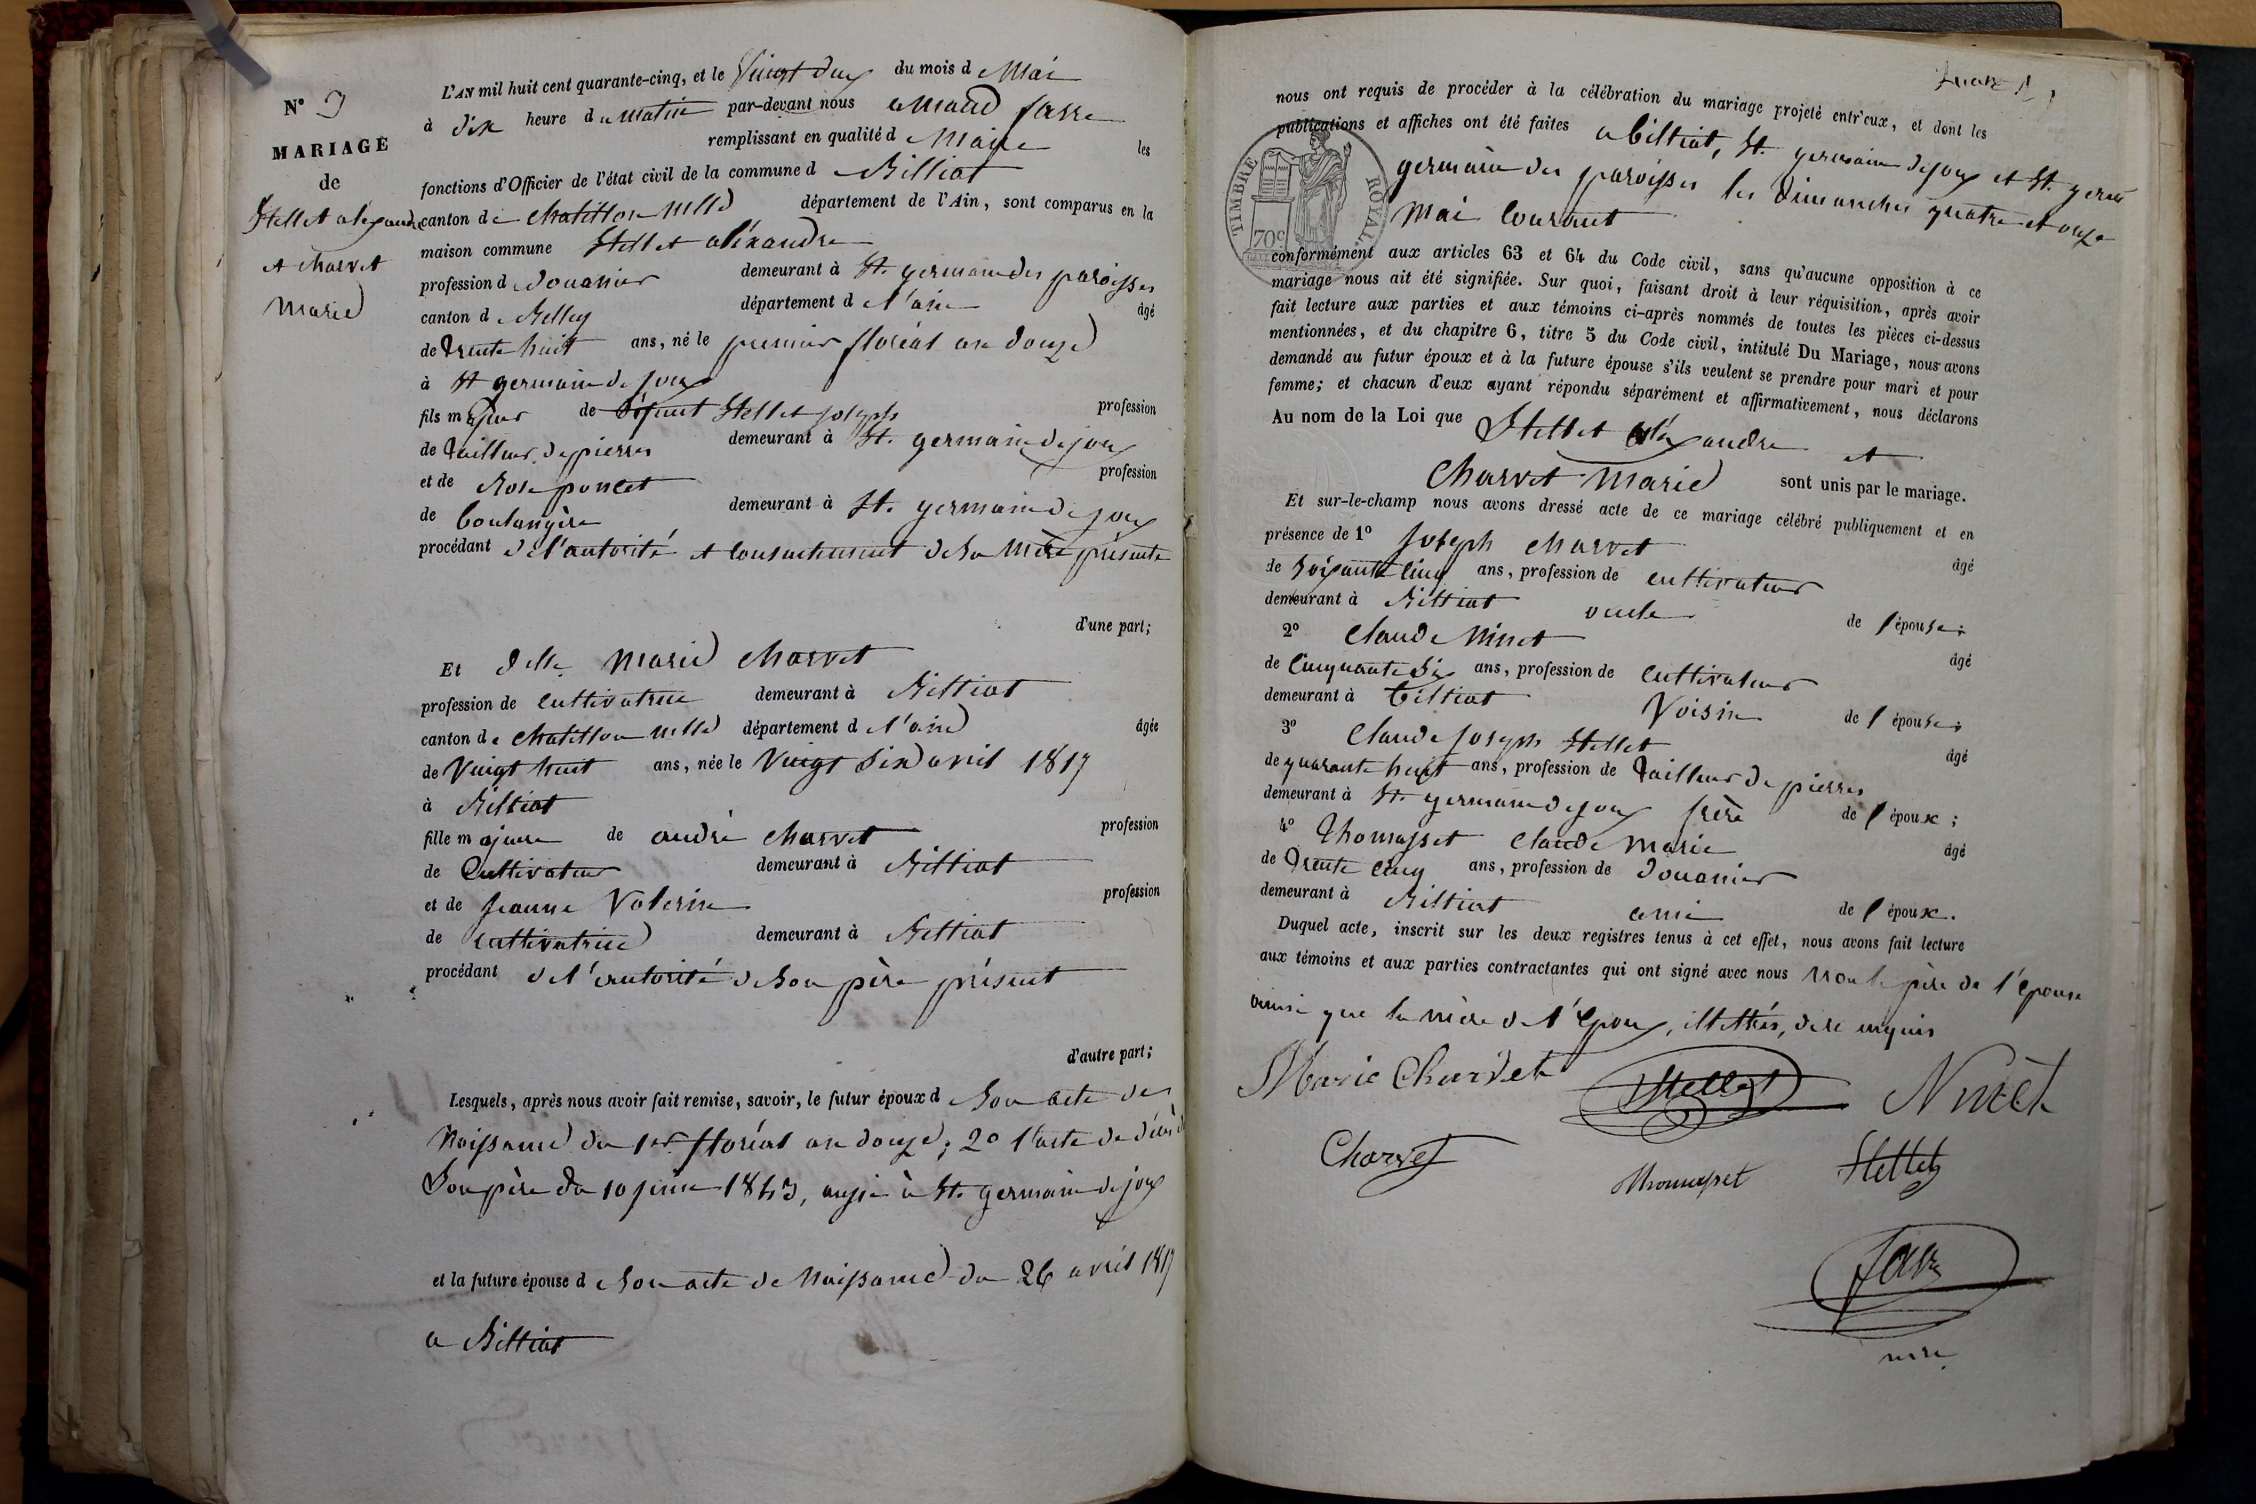 N° 3
MARIAGE
de
Stellet alexandre
et Charvet
Marie
L'AN mil huit cent quarante-cinq, et le Vingt deux du mois d Mai
à dix heure du matin par-devant nous amand favre
remplissant en qualité d Maire les
fonctions d'Officier de l'état civil de la commune d Billiat
canton de chatillon mlle département de l'Ain, sont comparus en la
maison commune Stellet aléxandre
profession d douanier demeurant à St. germain des paroisses
canton d Belley département d l'ain âgé
de trente huit ans, né le premier floréal an douze
à St germain de joux
fils majeur de défunt Stellet joseph profession
de tailleur de pierres demeurant à St. germain de joux
et de Rose poncet profession
de boulangère demeurant à St. germain de joux
procédant de l'autorité et consentement de sa mère présente
d'une part;
Et delle Marie charvet
profession de cultivatrice demeurant à Billiat
canton de chatillon mlle département d l'ain âgée
de Vingt huit ans, née le Vingt six avril 1817
à Billiat
fille majeure de andré charvet profession
de Cultivateur demeurant à Billiat
et de jeanne Valerin profession
de cultivatrice demeurant à Billiat
procédant de l'autorité de son père présent
d'autre part;
Lesquels, après nous avoir fait remise, savoir, le futur époux d son acte de
Naissance du 1er floréal an douze; 2° l'acte de décès de
Son père du 10 juin 1843, aussi à St. germain de joux
et la future épouse d son acte de Naissance du 26 avril 1817
a Billiat
nous ont requis de procéder à la célébration du mariage projeté entr'eux, et dont les
publications et affiches ont été faites a billiat, St. germain de joux et St. germ
germain des paroisses les dimanches quatre et onze
Mai Courant
TIMBRE ROYAL.
70c
conformément aux articles 63 et 64 du Code civil, sans qu'aucune opposition à ce
mariage nous ait été signifiée. Sur quoi, faisant droit à leur réquisition, après avoir
fait lecture aux parties et aux témoins ci-après nommés de toutes les pièces ci-dessus
mentionnées, et du chapitre 6, titre 5 du Code civil, intitulé Du Mariage, nous avons
demandé au futur époux et à la future épouse s'ils veulent se prendre pour mari et pour
femme; et chacun d'eux ayant répondu séparément et affirmativement, nous déclarons
Au nom de la Loi que Stellet aléxandre et
Charvet Marie sont unis par le mariage.
Et sur-le-champ nous avons dressé acte de ce mariage célébré publiquement et en
présence de 1° joseph charvet âgé
de soixante cinq ans, profession de cultivateur
demeurant à Billiat oncle de l'épouse;
2° Claude Ninet âgé
de Cinquante six ans, profession de Cultivateur
demeurant à billiat Voisin de l'épouse;
3° Claude joseph Stellet âgé
de quarante huit ans, profession de tailleur de pierres
demeurant à St. germain de joux frère de l'époux;
4° Thomasset Claude Marie âgé
de trente cinq ans, profession de douanier
demeurant à Billiat ami de l'époux.
Duquel acte, inscrit sur les deux registres tenus à cet effet, nous avons fait lecture
aux témoins et aux parties contractantes qui ont signé avec nous non le père de l'épouse
ainsi que la mère de l'époux, illettrés, de ce enquis
Marie Charvet Stellet Ninet
Charvet Thomasset Stellet
favre